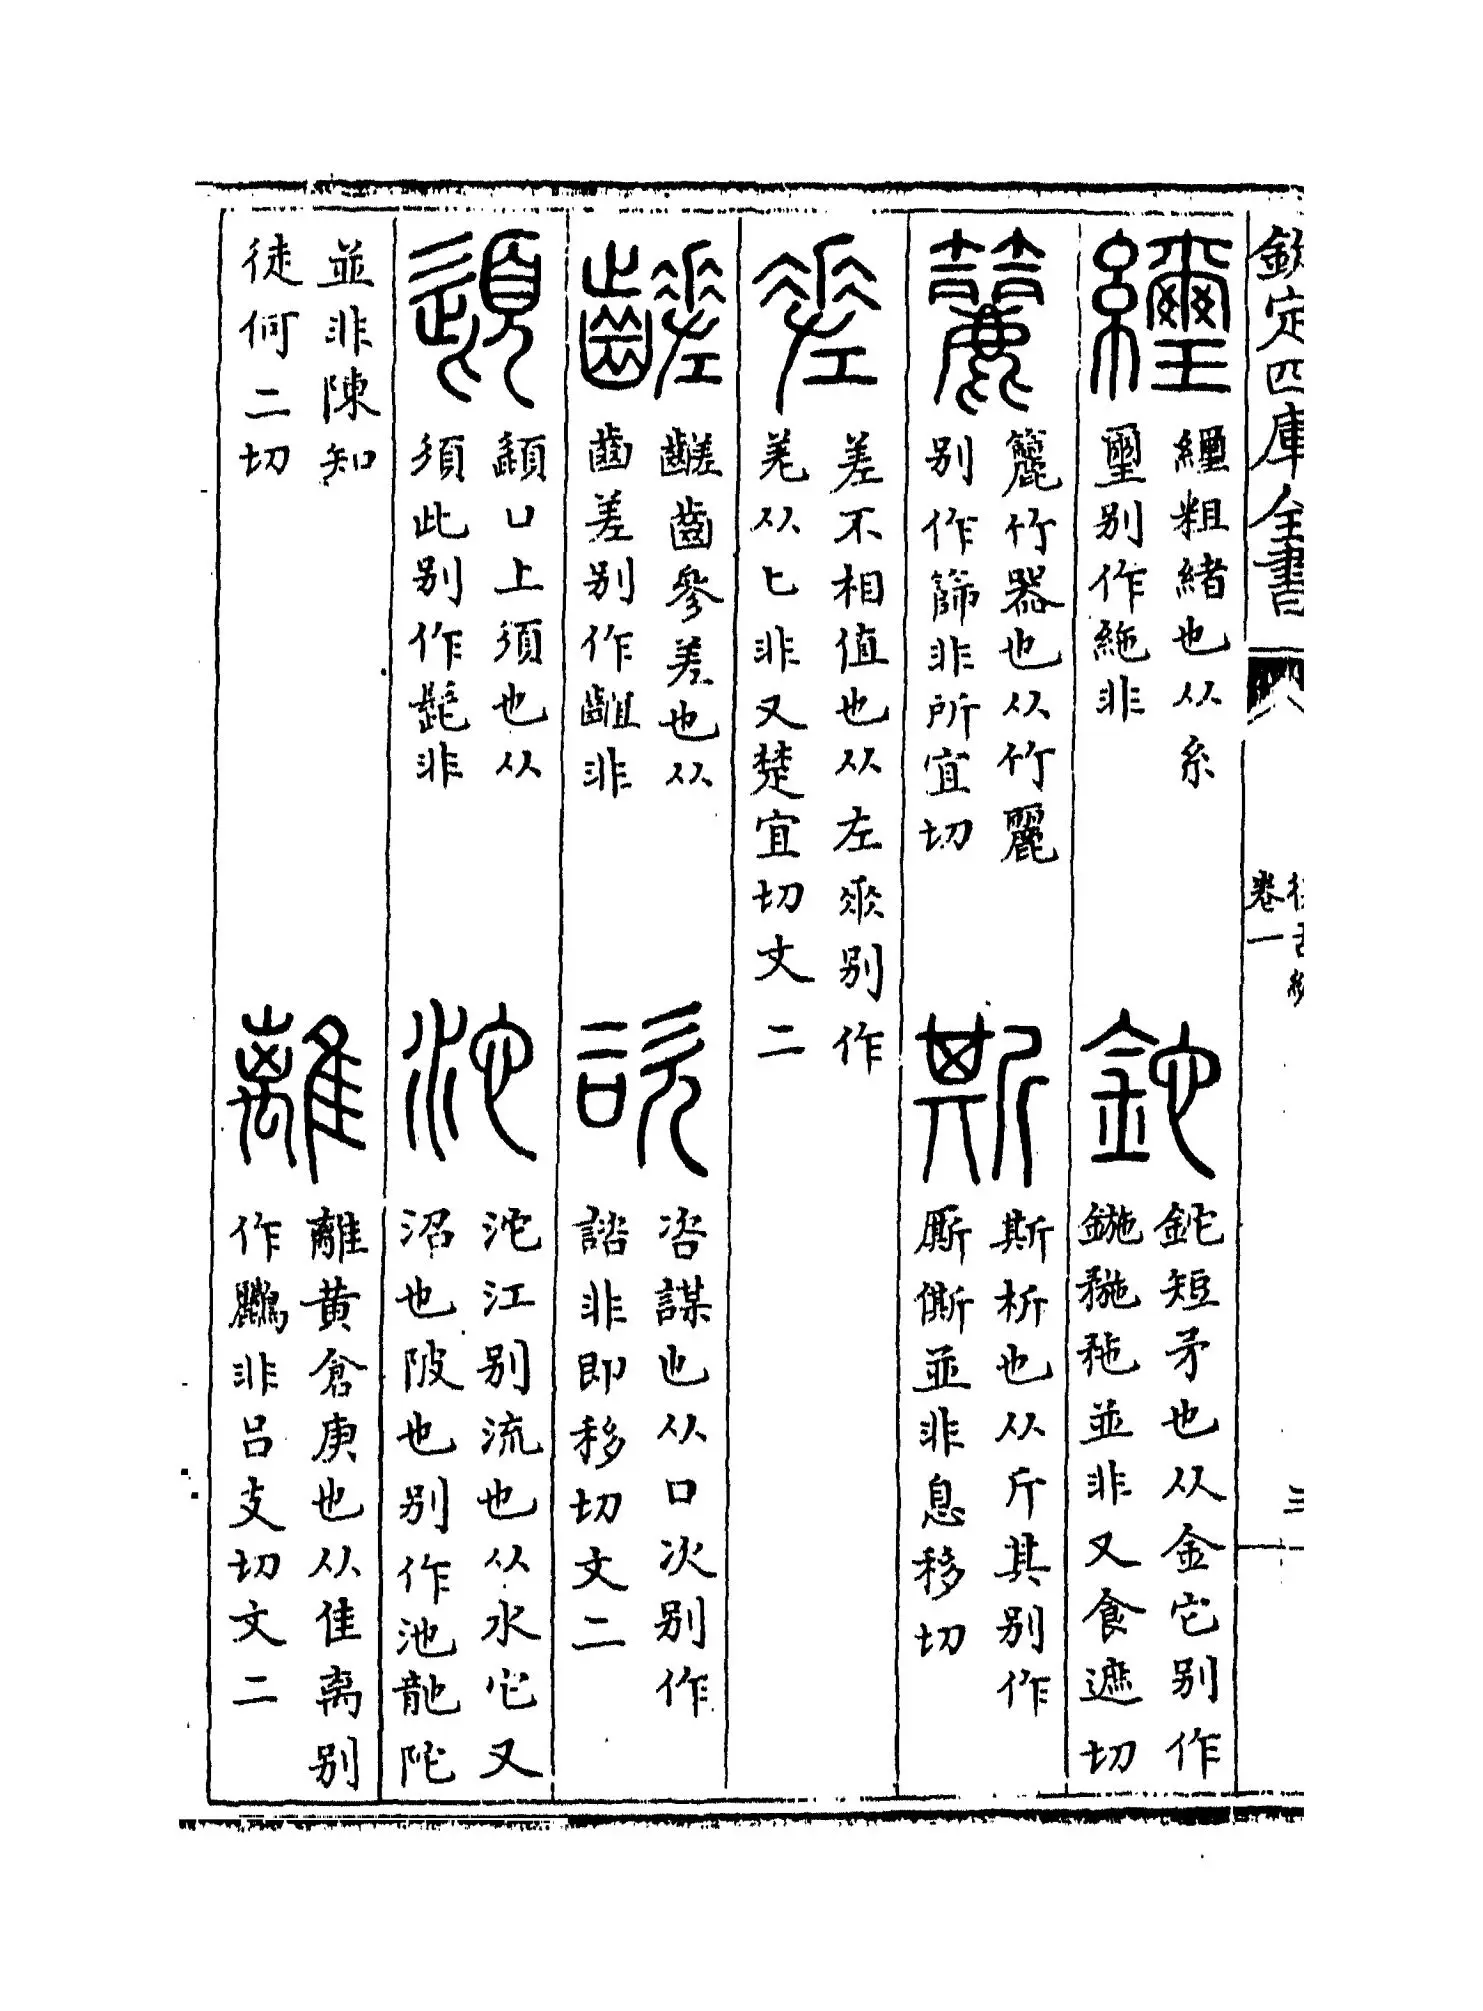 欽定四庫全書
卷一
纚粗緒也从糸
璽別作絁非
鉈短矛也从金它別作
鍦𥍸䂠並非又食遮切
籭竹器也从竹麗
別作篩非所宜切
斯析也从斤其別作
厮㒋並非息移切
差不相值也从左𠂹別作
羌从匕非又楚宜切文二
齹齒參差也从
齒差別作齜非
咨謀也从口次別作
諮非即移切文二
頿口上須也从
須此別作髭非
沱江別流也从水它又
沼也陂也別作池䶔陀
並非陳知
徒何二切
離黄倉庚也从隹离別
作鸝非呂支切文二